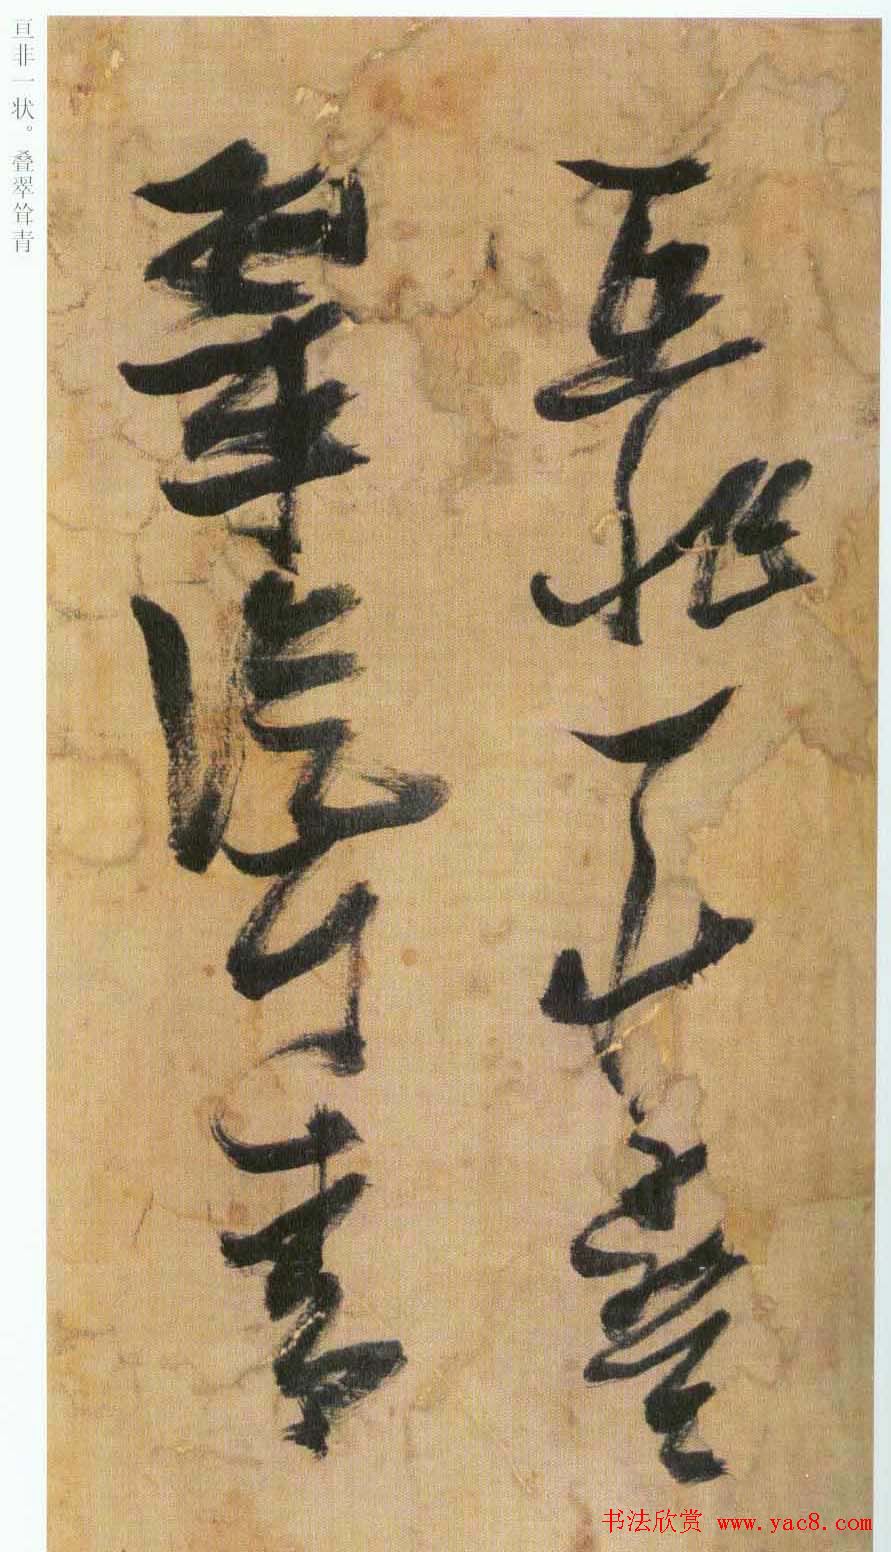 亘非一狀疊
翠聳青
亘非一状。叠翠耸青
书法欣赏 www.yac8.com